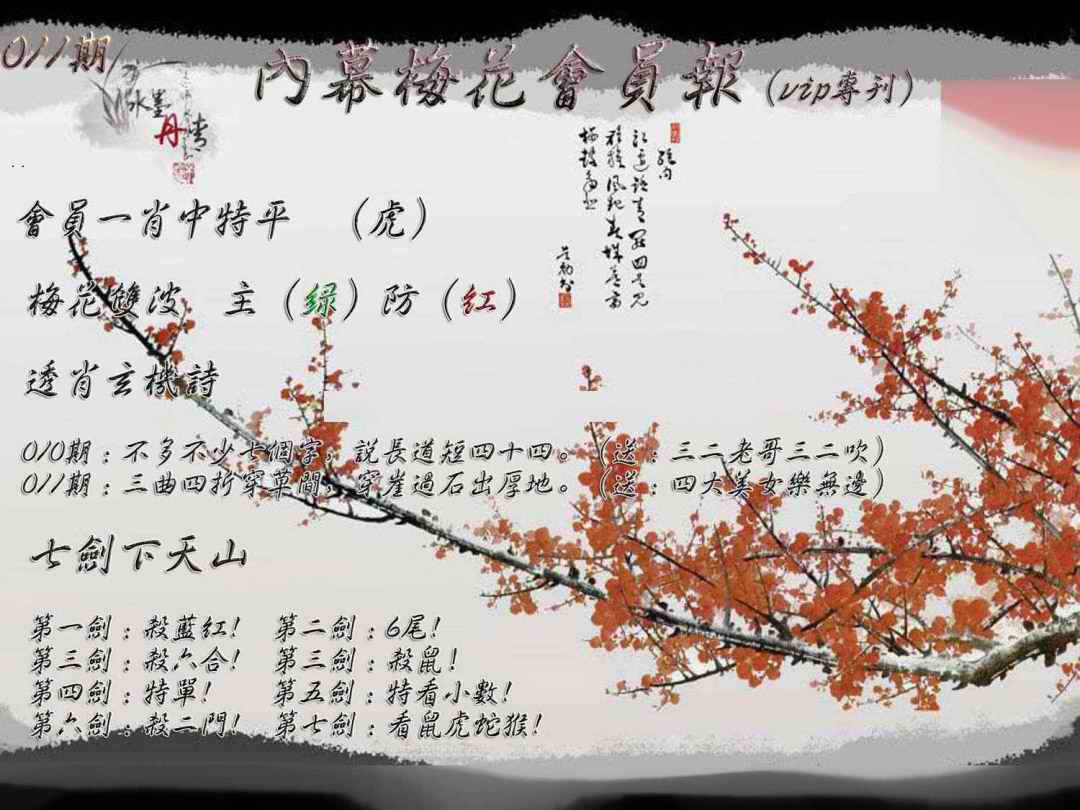 011期
水墨
丹青
內幕梅花會員報(vip專刊)
會員一肖中特平 (虎)
梅花雙波 主(綠)防(紅)
透肖玄機詩
010期:不多不少七個字,說長道短四十四。(送:三二老哥三二吹)
011期:三曲四折穿草間,穿崖過石出厚地。(送:四大美女樂無邊)
七劍下天山
第一劍:殺藍紅! 第二劍:6尾!
第三劍:殺六合! 第三劍:殺鼠!
第四劍:特單! 第五劍:特看小數!
第六劍:殺二門! 第七劍:看鼠虎蛇猴!